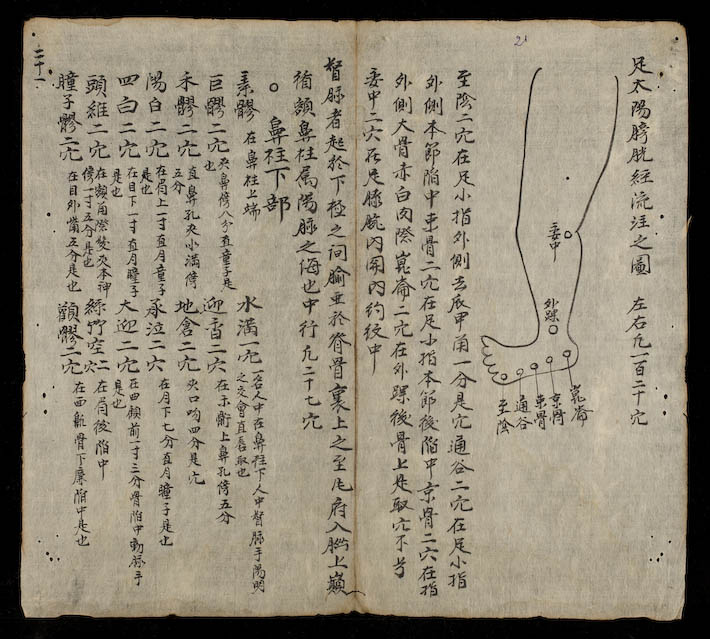 21
足太陽膀胱經流注之圖 左右凡一百二十六
委中
外踝
崑崙
京骨
束骨
通谷
至陰
至陰二穴在足小指外側去爪甲角一分是穴通谷二穴在足小指
外側本節陷中束骨二穴在足小指本節後陷中京骨二穴在指
外側大骨赤白肉際崑崙二穴在外踝後骨上是取穴不
委中二穴在足膝腕內開內約紋中
督脉者起於下極之間腧並於脊骨裏上之至風府入腦上巔
循額鼻柱屬陽脉之海也中行凡二十七穴
○鼻柱下部
素髎 在鼻柱上端 水溝一穴 一名人中在鼻柱下人中督脉手陽明之交會直唇取也
巨髎二穴 夾鼻傍八分直童子是也 迎香二穴 在禾髎上鼻孔傍五分
禾髎二穴 直鼻孔夾小溝傍五分 地倉二穴 夾口吻四分是穴
陽白二穴 在眉上一寸直月童子是也 承泣二穴 在月下七分直月瞳子是也
四白二穴 在目下一寸直月瞳子是也 大迎二穴 在曲頷前一寸三分骨陷中動脉手是也
頭維二穴 在額角際髮夾本神傍一寸五分是也 絲竹空二穴 在眉後陷中
瞳子髎二穴 在目外嘴五分是也 顴髎二穴 在面鼽骨下廉陷中是也
二十一